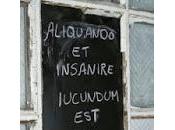 ALIQUANDO
ET
INSANIRE
IUCUNDUM
EST